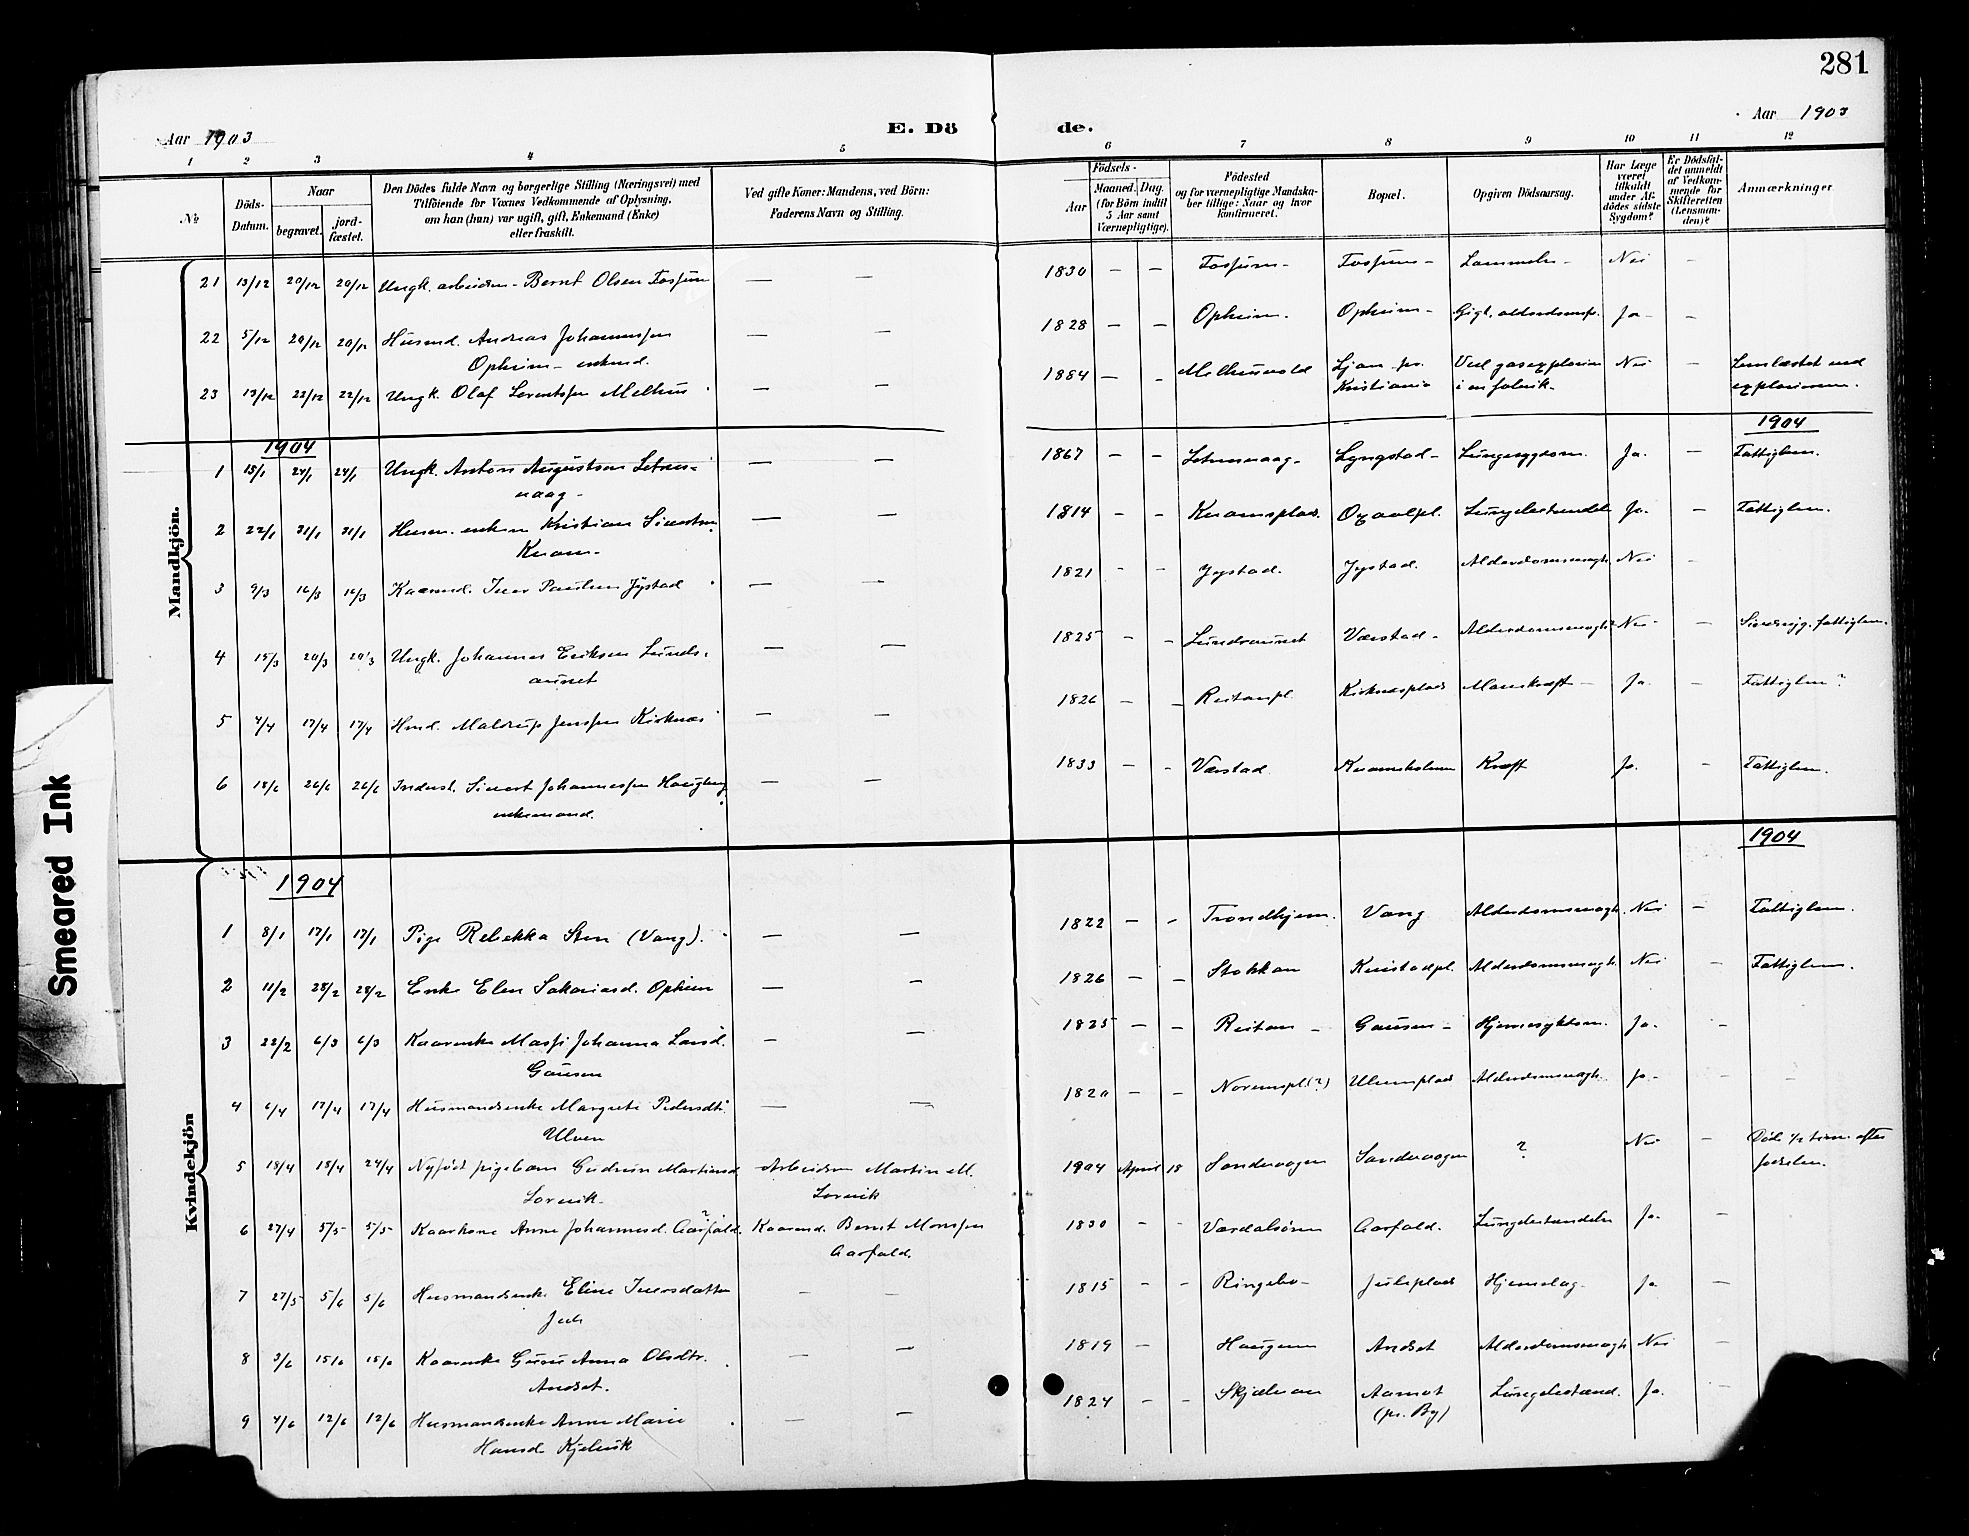 281
Aar 1903
E. Dö
de.
Aar 1903
1 2 3 4 5 6 7 8 9 10 11 12
№
Döds-Datum.
Naar
begravet.
jord-fæstet.
Den Dödes fulde Navn og borgerlige Stilling (Næringsvei) med
Tilföiende for Voxnes Vedkommende af Oplysning,
om han (hun) var ugift, gift, Enkemand (Enke)
eller fraskilt.
Ved gifte Koner: Mandens, ved Börn:
Faderens Navn og Stilling.
Födsels-
Aar
Maaned. Dag.
(for Börn indtil
5 Aar samt
Værnepligtige).
Födested
og for værnepligtige Mandska-
ber tillige: Naar og hvor
konfirmeret.
Bopæl.
Opgiven Dödsaarsag.
Har Læge
været
tilkaldt
under Af-
dödes sidste
Sygdom?
Er Dödsfal-
det anmeldt
af Vedkom-
mende for
Skifteretten
(Lensman-
den)?
Anmærkninger.
Mandkjön.
21 13/12 20/12 20/12 Ungk. arbeider - Bernt Olsen Fossum — — 1830 — — Fossum - Fossum - Nei —
22 5/12 20/12 20/12 Husmd. Andreas Johannessen — — 1828 — — Opheim. Opheim - Gigt. Ja - —
Opheim - enkemd.
23 13/12 22/12 22/12 Ungk. Olaf Lorentssen Melhus — — 1884 — — Melhusvold Ljan pr. Ved gasexplosion Nei — Lemlæstet ved
Kristiania i en fabrik. explosionen.
1904
1904
1 15/1 24/1 24/1 Ungk. Anton Augustsen — — 1867 — — Lyngstad - Lungesygdom. Ja. — Fattiglem.
2 22/1 31/1 31/1 Husm. enkem Kristian — — 1814 — — Kvamsplads. Lungebetændelse Ja. — Fattiglem.
Kvam -
3 9/3 16/3 16/3 Kaarmd. Iver Paulsen Jystad — — 1821 - - Jystad. Jystad. Alderdomssvagh. Nei —
4 15/3 20/3 20/3 Ungk. Johannes Eriksen Lunds- — — 1825 - - Lundsaunet Værstad - Alderdomssvagh. Nei - — fattiglem.
aunet
5 4/4 17/4 17/4 Hmd. Jenssen Kirknæs — — 1826 — — Reitanpl. Kirknesplads Mavekræft - Ja. — Fattiglem?
6 18/6 26/6 26/6 Inderst. Sivert Johannessen Haugberg — — 1833 — - Værstad. Kvamsholmen Kræft Ja. — Fattiglem.
enkemand.
Kvindekjön
1904
1904
1 8/1 17/1 17/1 Pige Rebekka Sten (Vang). — — 1822 — - Trondhjem. Vang Alderdomssvagh. Nei — Fattiglem.
2 11/2 28/2 28/2 Enke Elen Sakariasd. Opheim — — 1826 — — Stokkan Alderdomssvagh. Nei — Fattiglem.
3 22/2 6/3 6/3 Kaarenke Massi Johanna Larsd. — — 1825 — — Reitan - Gausen - Hjernesygdom. Ja. —
Gausen
4 6/4 17/4 17/4 Husmandsenke Margrete Pedersdtr. — — 1820 — — Noremspl (?) Ulvenplads Alderdomssvagh. Ja - -
Ulven
5 18/4 18/4 24/4 Nyfødt pigebarn Gudrun Martinsd. Arbeider Martin M. 1904 April 18 Sandvagen Sandvagen ? Nei — Död 1/2 time efter
Lorvik. Lorvik fødselen.
6 27/4 5/5 5/5 Kaarkone Anne Johannesd. Aarfald. Kaarmd. Bernt Monssen 1830 - - Værdalsören Aarfald. Lungebetændelse Ja. —
Aarfald.
7 27/5 5/6 5/6 Husmandsenke Eline Iversdatter — — 1815 - - Ringebo - Juleplads Hjerneslag. Ja. —
Jule
8 3/6 15/6 15/6 Kaarenke Guru Anna Olsdtr. — — 1819 — Haugan Andset Alderdomssvagh. Nei —
Andset.
9 4/6 12/6 12/6 Husmandsenke Anne Marie — — 1824 - - Skjelvan Aamot Lungebetænd. Ja. —
Hansd. (pr. By)
Smeared Ink